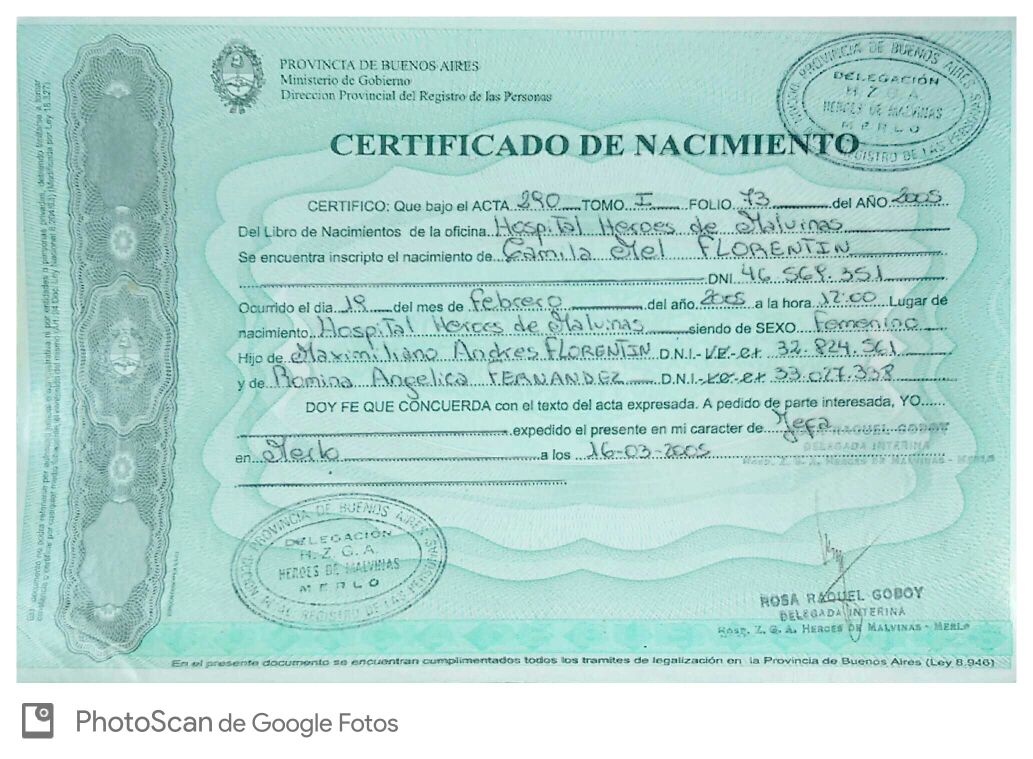 PROVINCIA DE BUENOS AIRES
Ministerio de Gobierno
Direccion Provincial del Registro de las Personas
PROVINCIA DE BUENOS AIRES
DELEGACIÓN
H. Z. G. A.
HEROES DE MALVINAS
MERLO
REGISTRO DE LAS PERSONAS
CERTIFICADO DE NACIMIENTO
CERTIFICO: Que bajo el ACTA 290 TOMO I FOLIO 73 del AÑO 2005
Del Libro de Nacimientos de la oficina. Hospital Heroes de Malvinas
Se encuentra inscripto el nacimiento de Camila Mel FLORENTIN
DNI. 46.569.351
Ocurrido el dia 19 del mes de febrero del año 2005 a la hora 12:00 Lugar de
nacimiento. Hospital Heroes de Malvinas siendo de SEXO Femenino
Hijo de Maximiliano Andres FLORENTIN D.N.I.-L.E.-C.I. 32.824.561
y de Romina Angelica FERNANDEZ D.N.I.-L.E.-C.I. 33.027.338
DOY FE QUE CONCUERDA con el texto del acta expresada. A pedido de parte interesada, YO......
expedido el presente en mi caracter de Jefa
RAQUEL GODOY
DELEGADA INTERINA
Hosp. Z. G. A. HEROES DE MALVINAS - MERLO
en Merlo a los 16-03-2005
PROVINCIA DE BUENOS AIRES
DELEGACIÓN
H. Z. G. A.
HEROES DE MALVINAS
MERLO
REGISTRO DE LAS PERSONAS
ROSA RAQUEL GODOY
DELEGADA INTERINA
Hosp. Z. G. A. HEROES DE MALVINAS - MERLO
En el presente documento se encuentran cumplimentados todos los tramites de legalización en la Provincia de Buenos Aires (Ley 8.946)
PhotoScan de Google Fotos